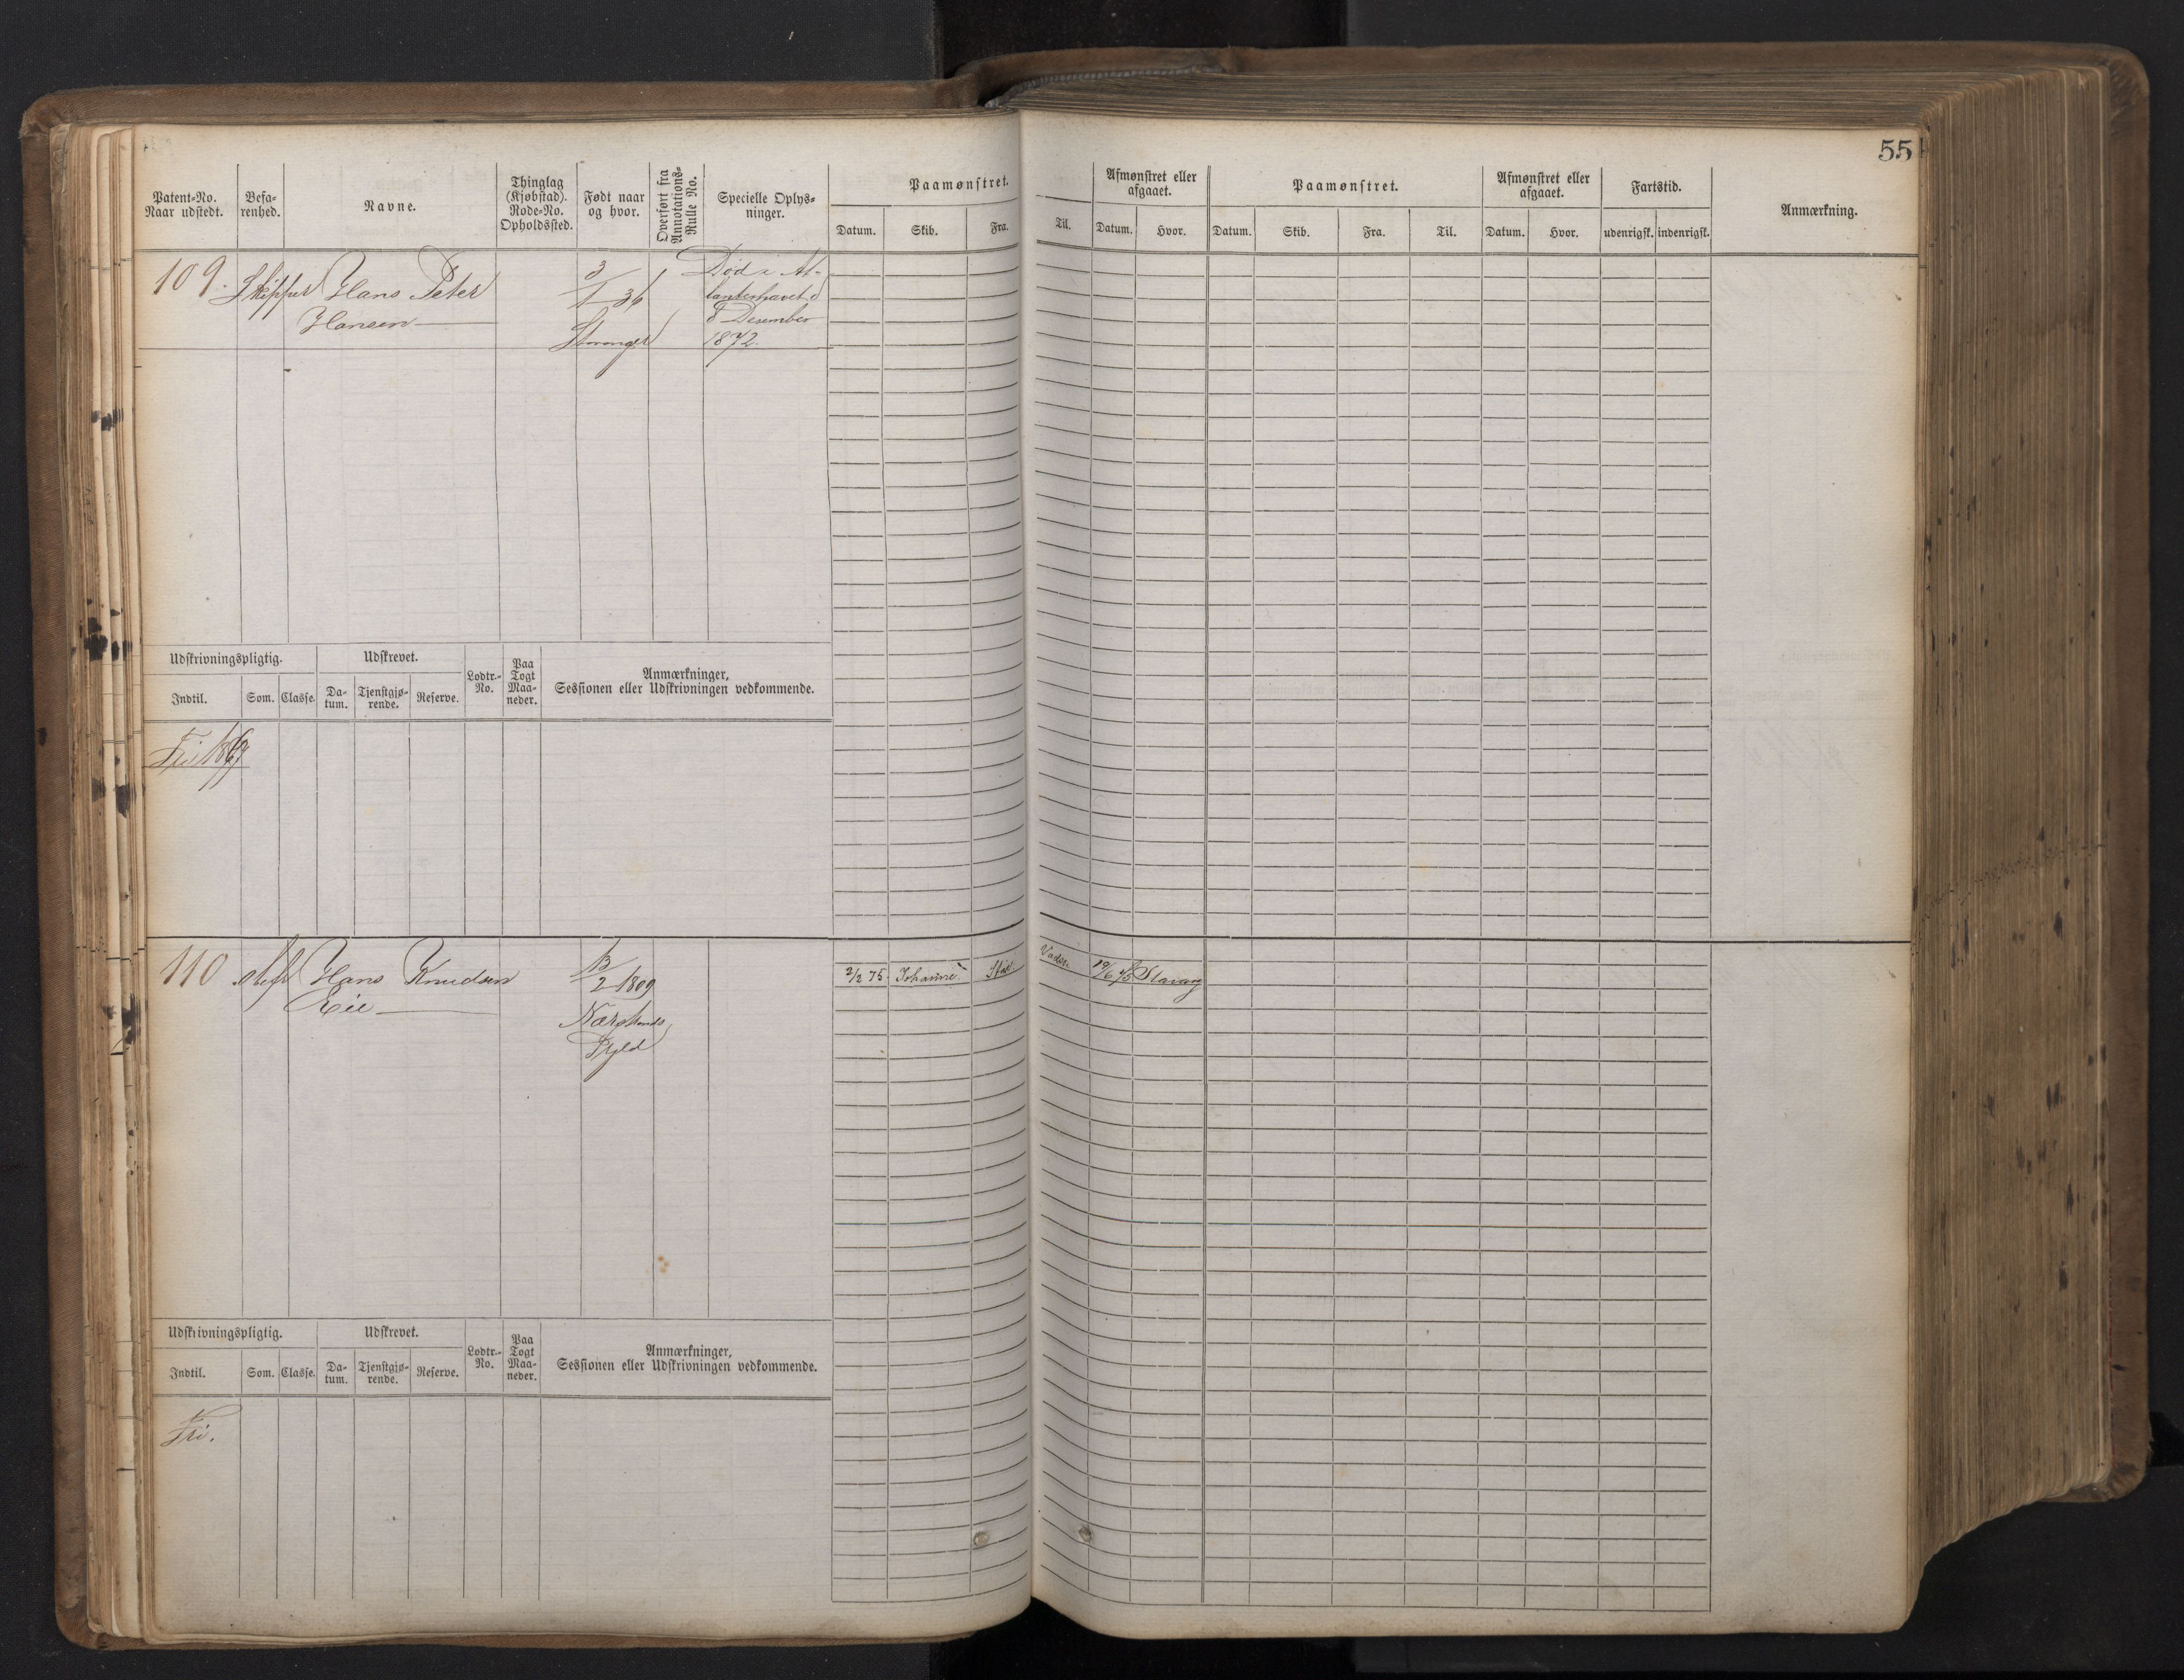 55
Patent-No. Naar udstedt. Befa- renhed. Navne. Thinglag (Kjøbstad). Rode-No. Opholdssted. Født naar og hvor. Overført fra Annotations- Rulle No. Specielle Oplys- ninger. Paamønstret. Afmønstret eller afgaaet. Paamønstret. Afmønstret eller afgaaet. Fartstid. Anmærkning.
Datum. Skib. Fra. Til. Datum. Hvor. Datum. Skib. Fra. Til. Datum. Hvor. udenrigsk. indenrigsk.
109. Skipper Hans Peter 3/1 36 Død i At-
Hansen lanterhavet d
8 December
Stavanger 1872.
Udskrivningspligtig. Udskrevet. Lodtr.- No. Paa Togt Maa- neder. Anmærkninger, Sessionen eller Udskrivningen vedkommende.
Indtil. Som. Classe. Da- tum. Tjenstgjø- rende. Reserve.
Fri
110 Hans Knudsen 13/2 1809 2/2 75. Johanne Vadsø 19/6 75 Stavag
Eie Nærstrands
Udskrivningspligtig. Udskrevet. Lodtr.- No. Paa Togt Maa- neder. Anmærkninger, Sessionen eller Udskrivningen vedkommende.
Indtil. Som. Classe. Da- tum. Tjenstgjø- rende. Reserve.
Fri.